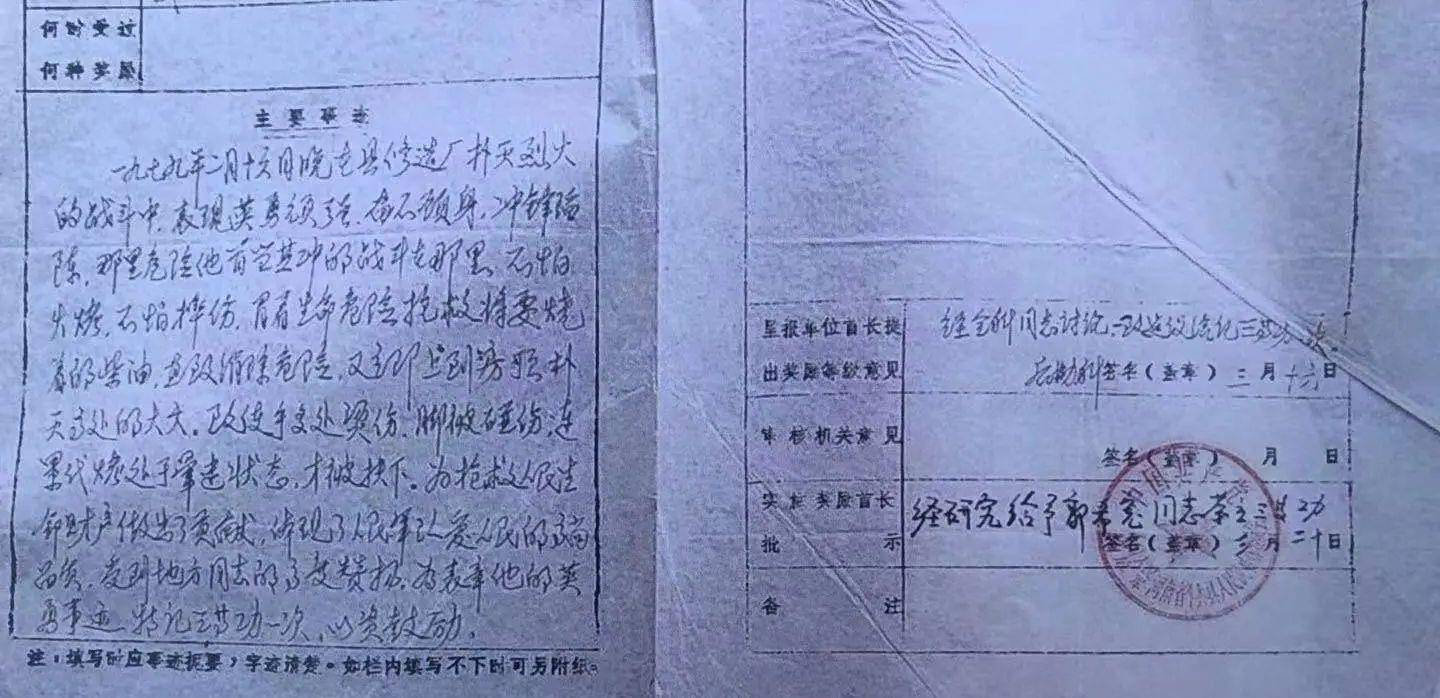 何时受过
何种奖励
主要事迹
一九七九年二月十六日晚在县修造厂扑灭烈火
的战斗中，表现英勇顽强，奋不顾身，冲锋陷
陈，那里危险他首当其冲的战斗在那里，不怕
火烤，不怕摔伤，冒着生命危险抢救将要烧
着的柴油，直致消除危险，又立即上到房顶扑
灭高处的大火。致使手多处烫伤，脚被砸伤，连
累代烤处于晕迷状态，才被扶下。为抢救人民生
命财产做出了贡献，体现了人民军队爱人民的高尚
品质，受到地方同志的高度赞扬，为表章他的英
勇事迹，特记三等功一次，以资鼓励。
注：填写时应事迹扼要，字迹清楚。如栏内填写不下时可另附纸。
呈报单位首长提
出奖励等级意见
经全科同志讨论，一致建议给记三等功一次。
后勤科签名（盖章）三月十六日
审核机关意见
签名（盖章） 月 日
实施奖励首长
批示
经研究给予郭 宪同志荣立三等功
签名（盖章）三月二十日
备注